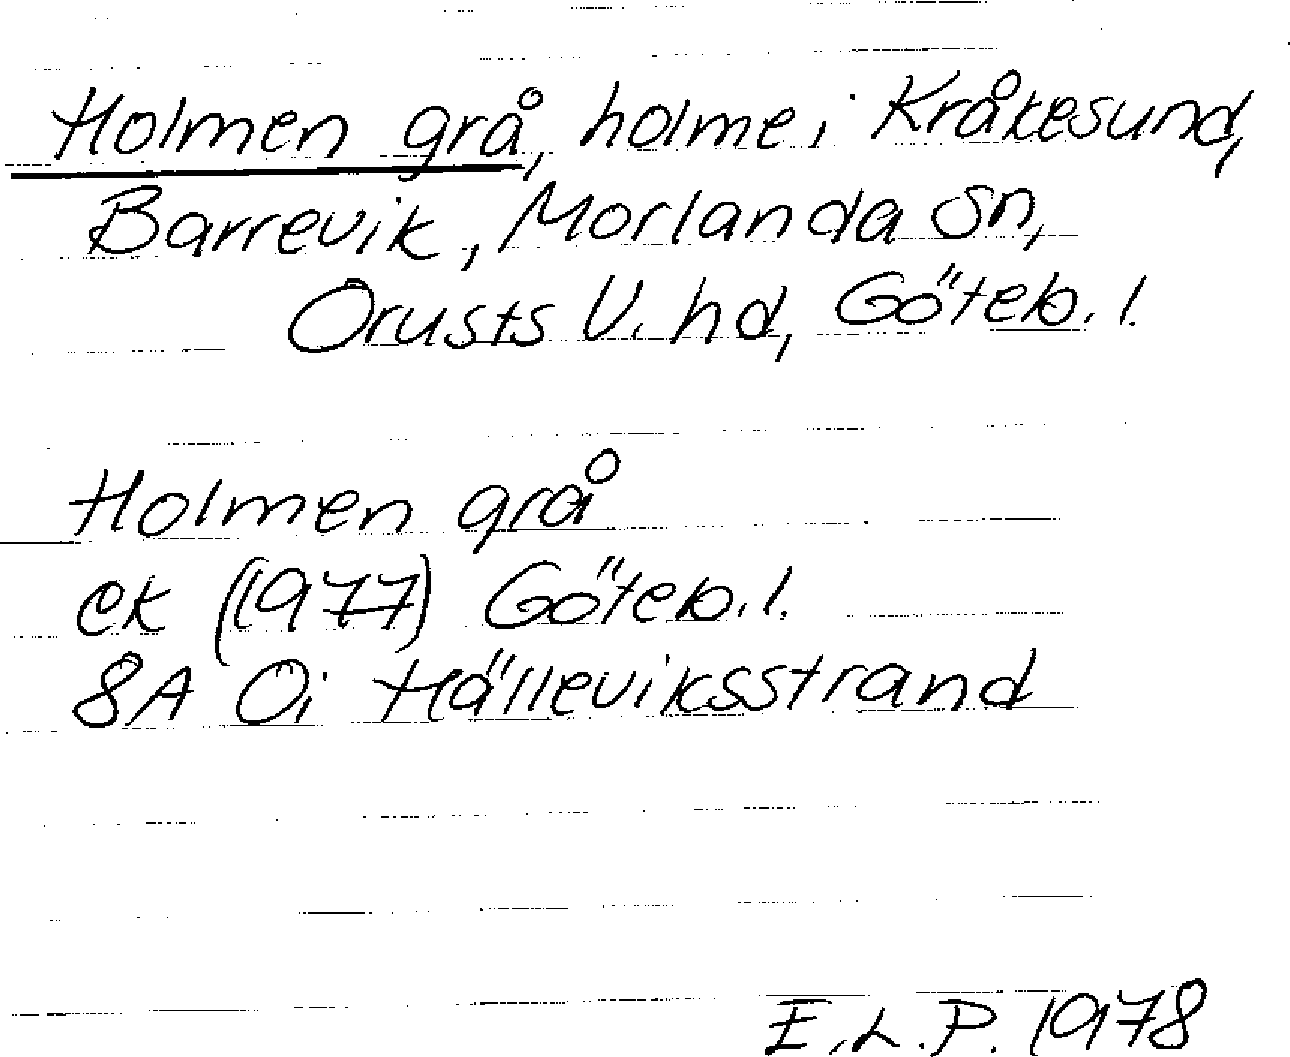 Holmen grå, holme i Kråkesund,
Barrevik, Morlanda sn,
Orusts V. hd, Göteb. l.
Holmen grå
ek (1977) Göteb. l.
8A Oi Hälleviksstrand
E.L.P. 1978